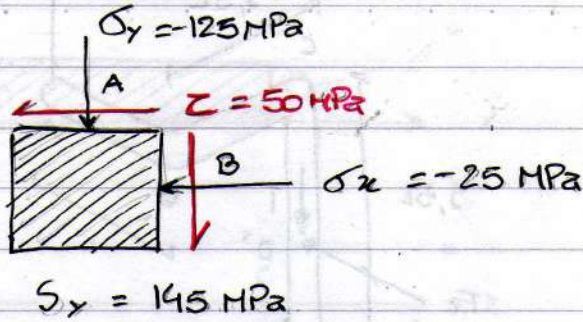 σy = -125 MPa
A
τ = 50 MPa
B
σx = -25 MPa
Sy = 145 MPa